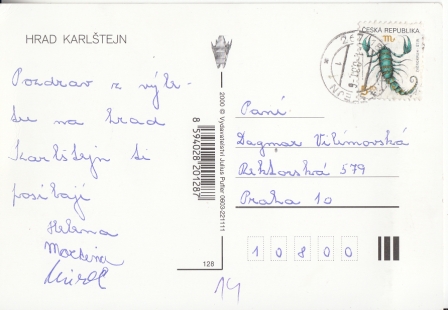 HRAD KARLŠTEJN
Pozdrav z výle-
tu na hrad
Karlštejn Ti
posílají
Helena
Martina
ČESKÁ REPUBLIKA
Paní
Dagmar Vilímovská
Rektorská 579
Praha 10
10800
2000 © Vydavatelství Julius Pufler 0603/221111
8 594028 201287
128
14